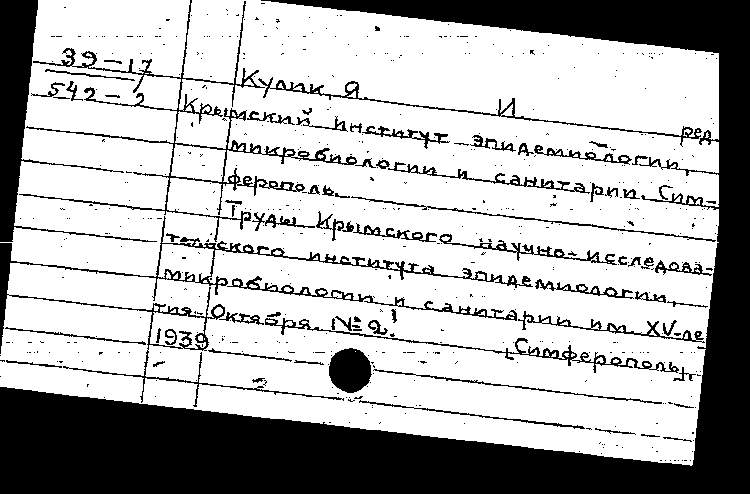 39-17
542-2
Кулик, Я. И. ред.
Крымский институт эпидемиологии,
микробиологии и санитарии. Сим-
ферополь.
Труды Крымского научно-исследова-
тельского института эпидемиологии,
микробиологии и санитарии им. XV-ле
тия Октября. № 2.
[Симферополь],
1939.